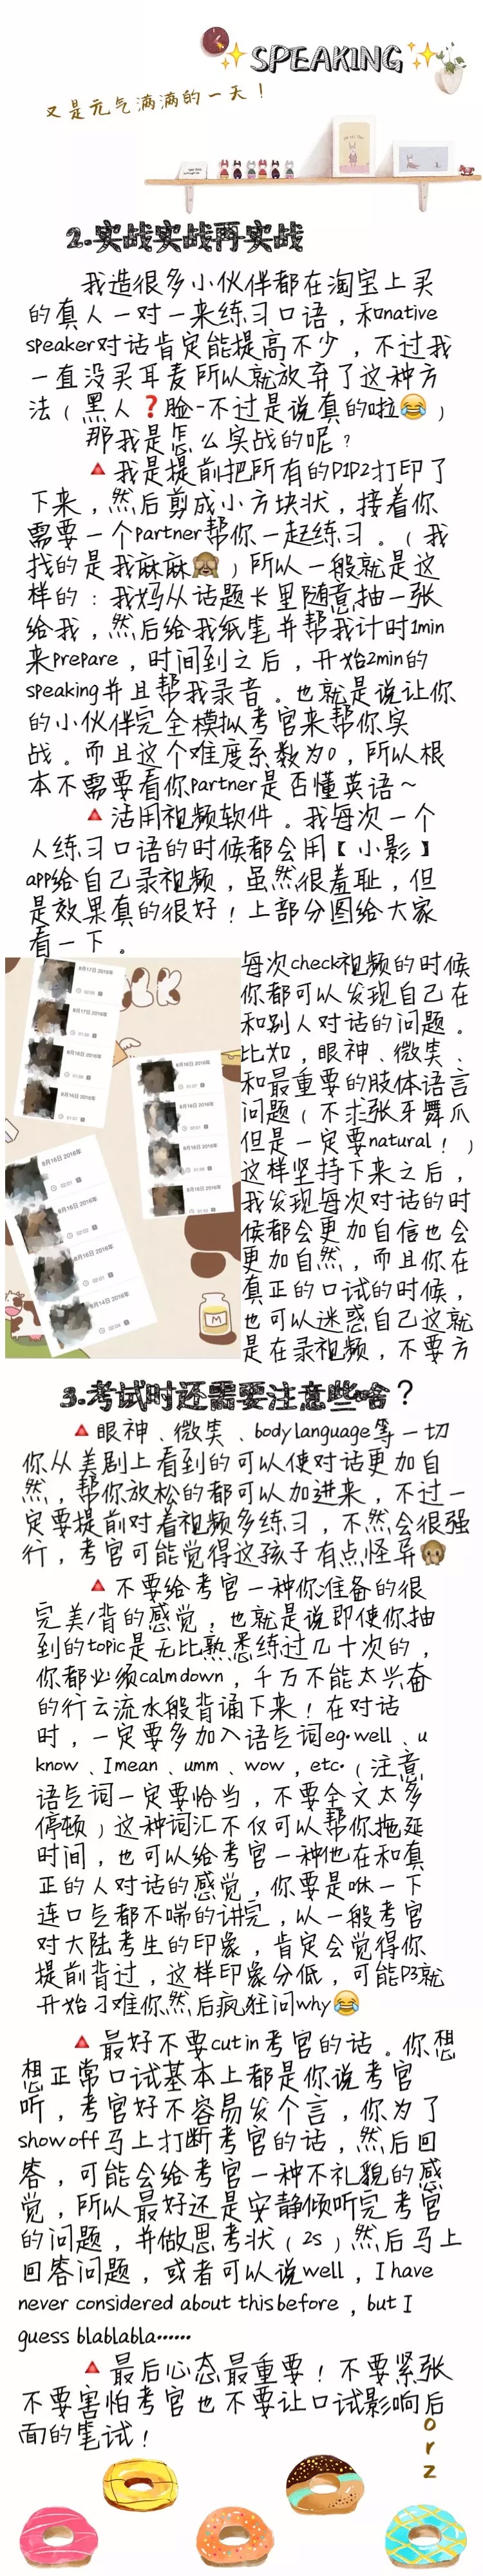 SPEAKING
又是元气满满的一天！
2.实战实战再实战
我造很多小伙伴都在淘宝上买
的真人一对一来练习口语，和native
speaker对话肯定能提高不少，不过我
一直没买耳麦所以就放弃了这种方
法（黑人❓脸-不过是说真的啦😂）
那我是怎么实战的呢？
🔺我是提前把所有的P1P2打印了
下来，然后剪成小方块状，接着你
需要一个partner帮你一起练习。（我
找的是我麻麻🙈）所以一般就是这
样的：我妈从话题卡里随意抽一张
给我，然后给我纸笔并帮我计时1min
来prepare，时间到之后，开始2min的
speaking并且帮我录音。也就是说让你
的小伙伴完全模拟考官来帮你实
战。而且这个难度系数为0，所以根
本不需要看你partner是否懂英语～
🔺活用视频软件。我每次一个
人练习口语的时候都会用【小影】
app给自己录视频，虽然很羞耻，但
是效果真的很好！上部分图给大家
看一下。
每次check视频的时候
你都可以发现自己在
和别人对话的问题。
比如，眼神、微笑、
和最重要的肢体语言
问题（不求张牙舞爪
但是一定要natural！）
这样坚持下来之后，
我发现每次对话的时
候都会更加自信也会
更加自然，而且你在
真正的口试的时候，
也可以迷惑自己这就
是在录视频，不要方
8月17日 2016年
8月17日 2016年
8月16日 2016年
8月16日 2016年
8月16日 2016年
8月16日 2016年
8月16日 2016年
8月16日 2016年
8月16日 2016年
02:01
8月16日 2016年
02:02
8月16日 2016年
02:01
8月14日 2016年
02:04
M
3.考试时还需要注意些啥？
🔺眼神、微笑、body language等一切
你从美剧上看到的可以使对话更加自
然，帮你放松的都可以加进来，不过一
定要提前对着视频多练习，不然会很强
行，考官可能觉得这孩子有点怪异🙊
🔺不要给考官一种你准备的很
完美/背的感觉，也就是说即使你抽
到的topic是无比熟悉练过几十次的，
你都必须calm down，千万不能太兴奋
的行云流水般背诵下来！在对话
时，一定要多加入语气词eg.well、u
know、I mean、umm、wow，etc.（注意
语气词一定要恰当，不要全文太多
停顿）这种词汇不仅可以帮你拖延
时间，也可以给考官一种他在和真
正的人对话的感觉，你要是咻一下
连口气都不喘的讲完，以一般考官
对大陆考生的印象，肯定会觉得你
提前背过，这样印象分低，可能P3就
开始刁难你然后疯狂问why😂
🔺最好不要cut in考官的话。你想
想正常口试基本上都是你说考官
听，考官好不容易发个言，你为了
show off马上打断考官的话，然后回
答，可能会给考官一种不礼貌的感
觉，所以最好还是安静倾听完考官
的问题，并做思考状（2s）然后马上
回答问题，或者可以说well，I have
never considered about this before，but I
guess blablabla……
🔺最后心态最重要！不要紧张
不要害怕考官也不要让口试影响后
面的笔试！
orz